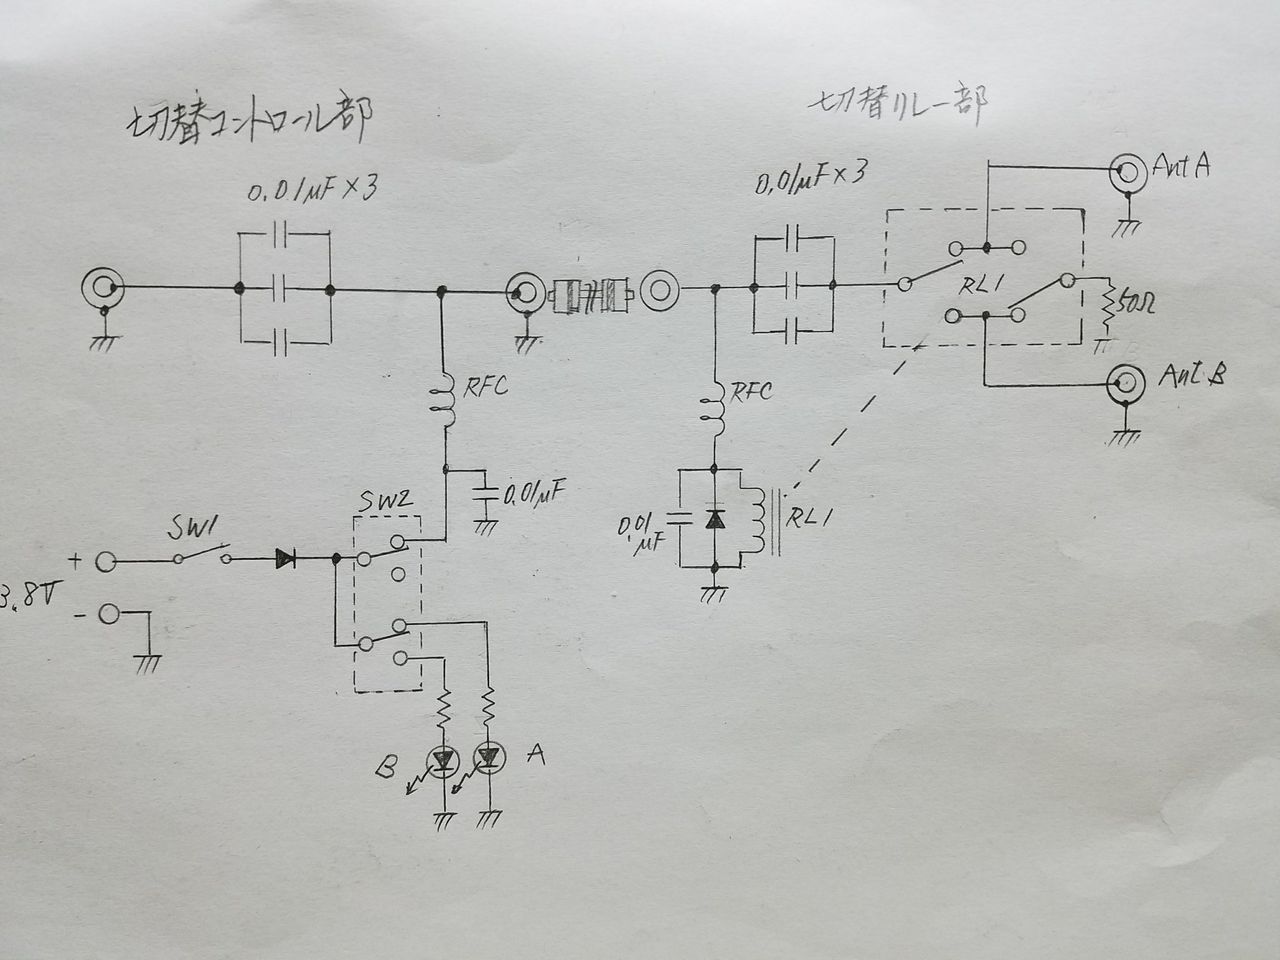 切替コントロール部
切替リレー部
0.01μF×3
0.01μF×3
Ant A
RL1
50Ω
Ant B
RFC
RFC
SW2
0.01μF
SW1
+
0.01
μF
RL1
3.8V
-
B
A